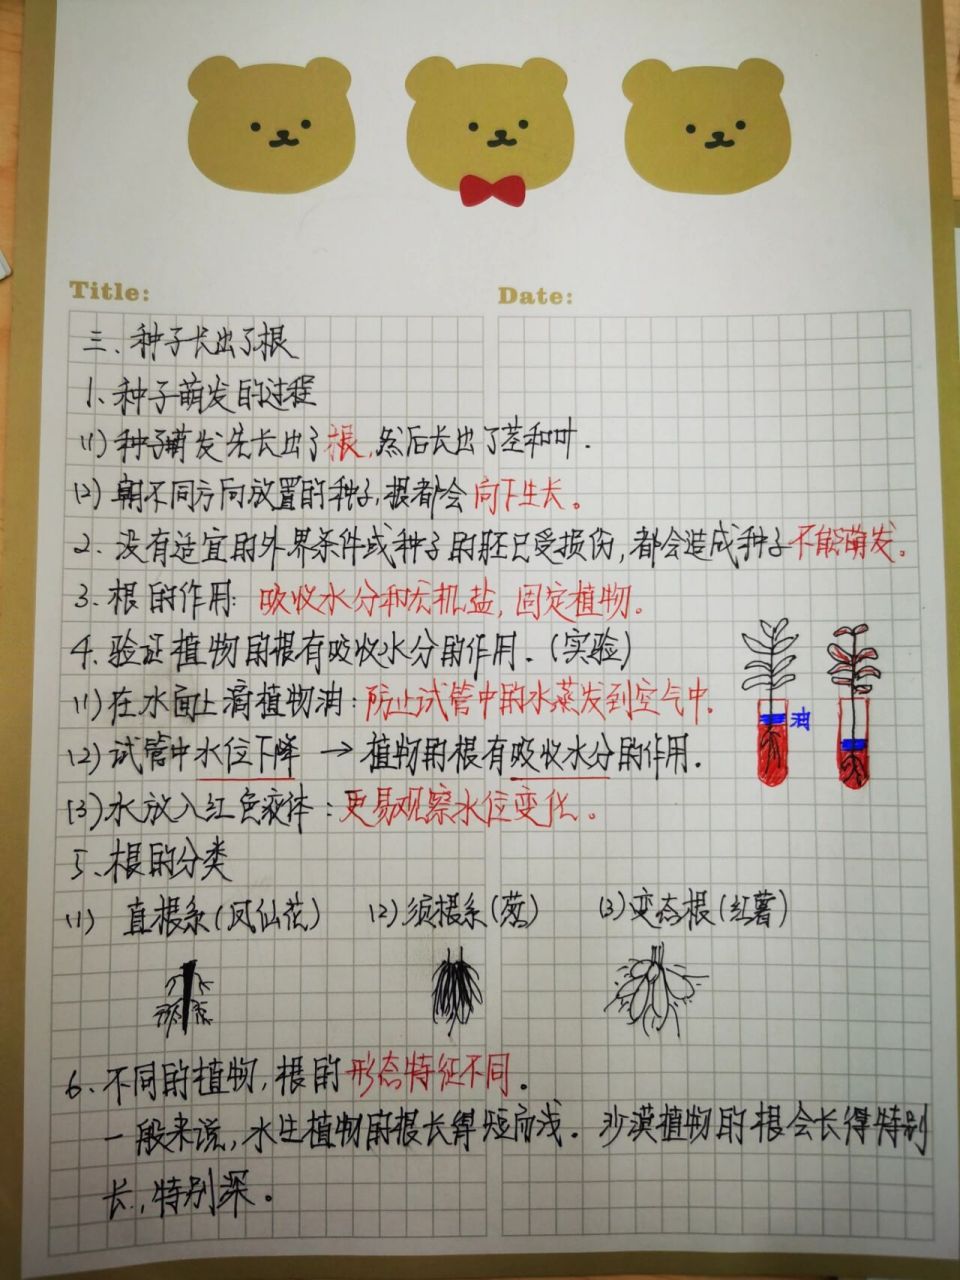 Title:
Date:
三、种子长出了根
1、种子萌发的过程
(1)种子萌发先长出了根,然后长出了茎和叶.
(2)朝不同方向放置的种子,根都会向下生长。
2、没有适宜的外界条件或种子的胚已受损伤,都会造成种子不能萌发。
3、根的作用: 吸收水分和无机盐,固定植物。
4、验证植物的根有吸收水分的作用.(实验)
(1)在水面上滴植物油:防止试管中的水蒸发到空气中.
油
(2)试管中水位下降 → 植物的根有吸收水分的作用.
(3)水放入红色液体:更易观察水位变化。
5、根的分类
(1) 直根系(凤仙花) (2)须根系(葱) (3)变态根(红薯)
6、不同的植物,根的形态特征不同.
一般来说,水生植物的根长得短而浅. 沙漠植物的根会长得特别
长,特别深。